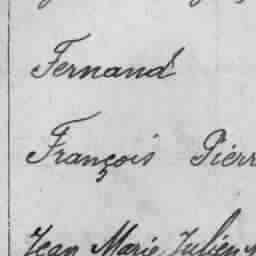 Fernand
François Pierr
Jean Marie Julien